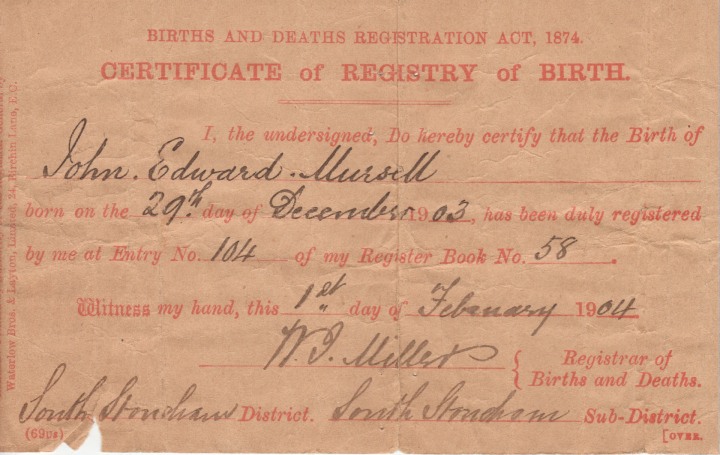 BIRTHS AND DEATHS REGISTRATION ACT, 1874.
CERTIFICATE of REGISTRY of BIRTH.
I, the undersigned, Do hereby certify that the Birth of
John. Edward. Mursell
born on the 29th day of December 1903, has been duly registered
by me at Entry No. 104 of my Register Book No. 58.
Witness my hand, this 1st day of Febuary 1904
W. J. Miller
Registrar of
Births and Deaths.
South Stoneham District. South Stoneham Sub-District.
(69ps)
[OVER.
Waterlow Bros. & Layton, Limited, 24, Birchin Lane, E.C.